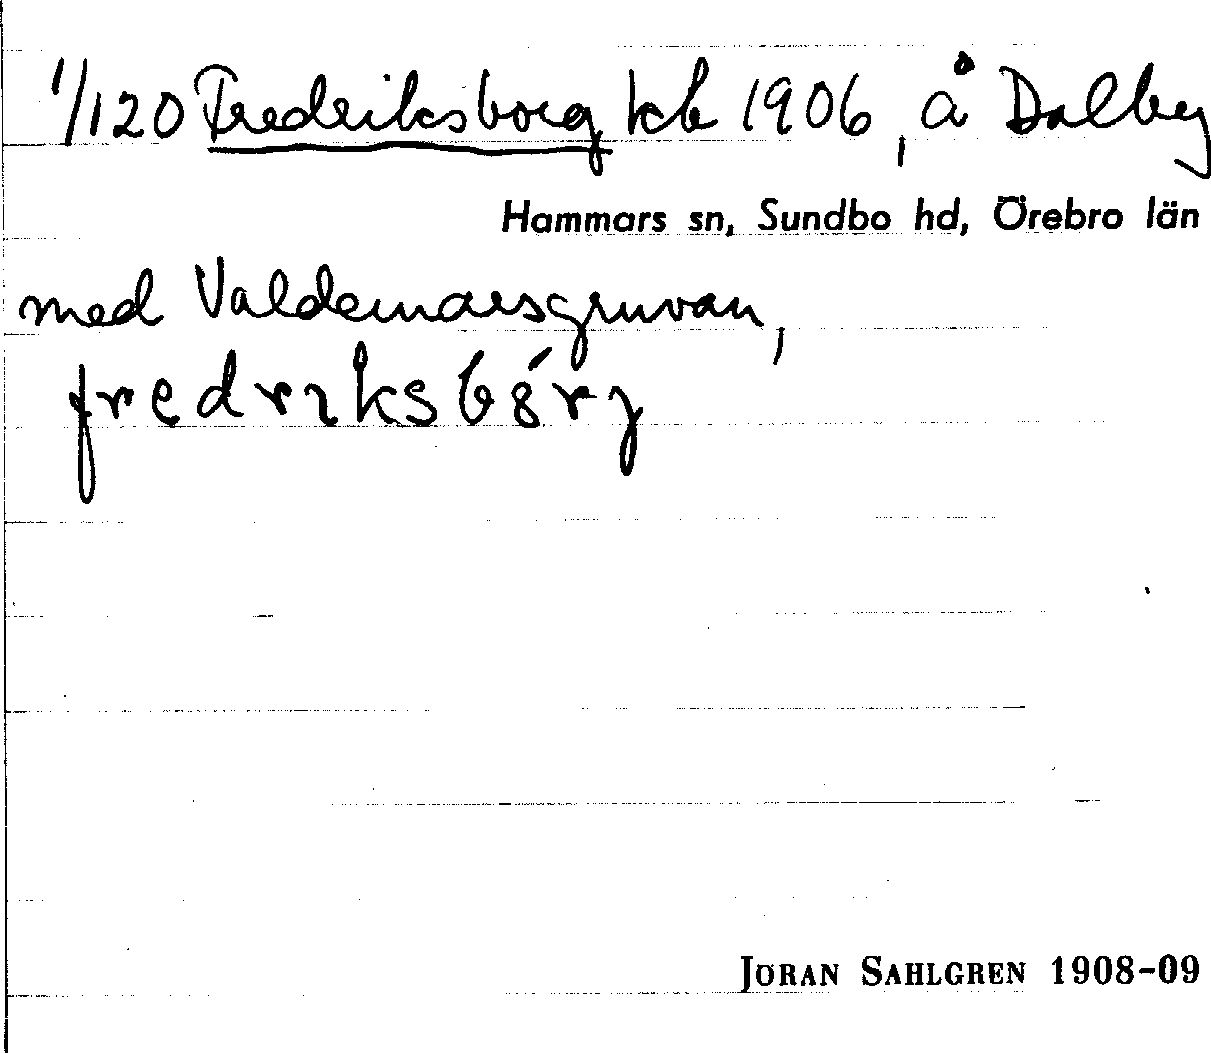 1/120 Fredriksborg kb 1906, å Dalby
Hammars sn, Sundbo hd, Örebro län
med Valdemarsgruvan,
fredrıksbórj
JÖRAN SAHLGREN 1908-09